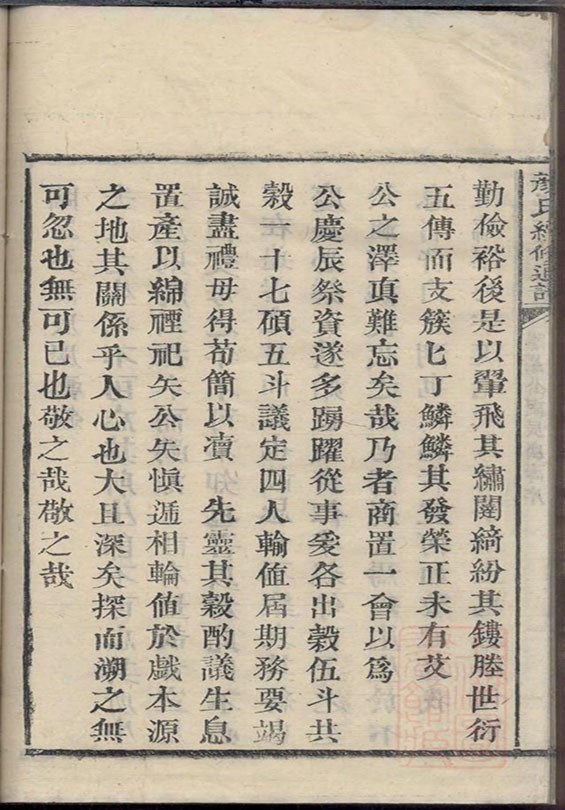 顏氏續修通譜
勤儉裕後是以翬飛其繡闥綺紛其鏤塍世衍
五傳而支簇七丁鱗鱗其發榮正未有艾
公之澤眞難忘矣哉乃者商置一會以爲
公慶辰祭資遂多踴躍從事爰各出穀伍斗共
穀一十七碩五斗議定四人輸值屆期務要竭
誠盡禮毋得苟簡以凟 先靈其穀酌議生息
置產以綿禋祀矢公矢愼遞相輪值於戲本源
之地其關係乎人心也大且深矣探而溯之無
可忽也無可已也敬之哉敬之哉